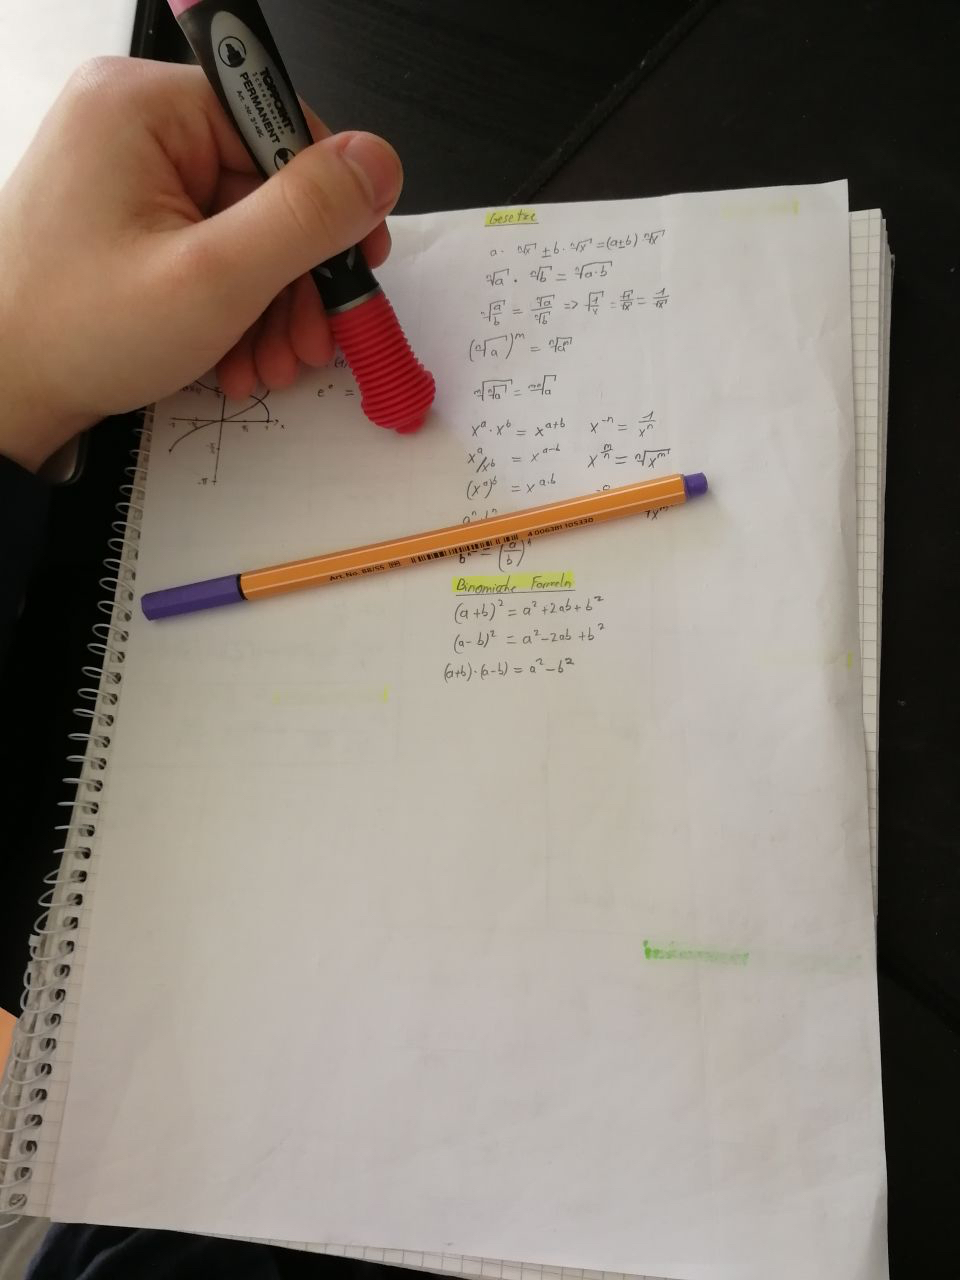 TOPPOINT®
Schreibwaren
PERMANENT
Art.-Nr. 3149C
Gesetze
a · ⁿ√x ± b · ⁿ√x = (a±b) ⁿ√x
ⁿ√a · ⁿ√b = ⁿ√(a·b)
ⁿ√(a/b) = ⁿ√a / ⁿ√b => √(1/x) = √1/√x = 1/√x
(ⁿ√a)ᵐ = ⁿ√aᵐ
ᵐ√(ⁿ√a) = ᵐⁿ√a
e° =
xᵃ · xᵇ = xᵃ⁺ᵇ x⁻ⁿ = 1/xⁿ
xᵃ/xᵇ = xᵃ⁻ᵇ x^(m/n) = ⁿ√xᵐ
(xᵃ)ᵇ = xᵃ·ᵇ
Art. No. 88/55 4 006381 105330
Binomische Formeln
(a+b)² = a² + 2ab + b²
(a-b)² = a² - 2ab + b²
(a+b)·(a-b) = a² - b²